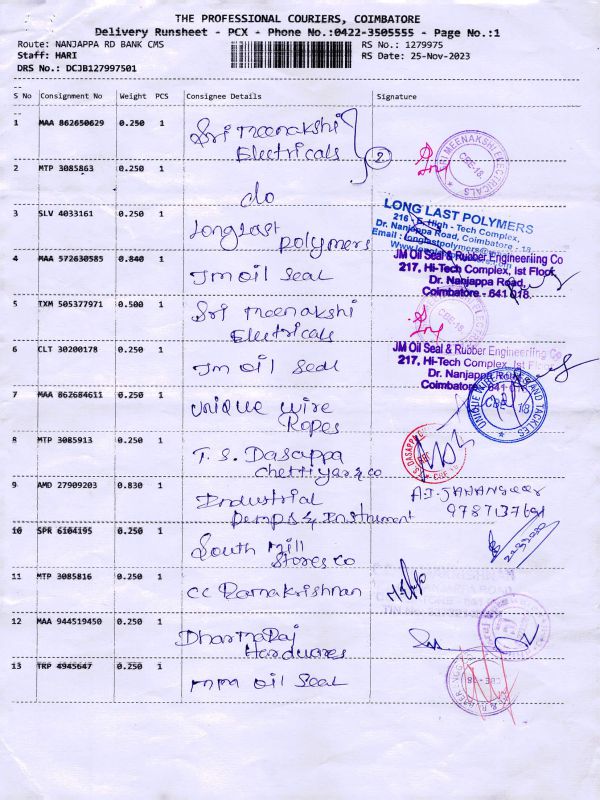 THE PROFESSIONAL COURIERS, COIMBATORE
Delivery Runsheet - PCX - Phone No.:0422-3505555 - Page No.:1
Route: NANJAPPA RD BANK CMS
RS No.: 1279975
Staff: HARI
RS Date: 25-Nov-2023
DRS No.: DCJB127997501
S No Consignment No Weight PCS Consignee Details Signature
1 MAA 862650629 0.250 1 Sri Meenakshi
Electricals
2
SRI MEENAKSHI ELECTRICALS
CBE-18.
2 MTP 3085863 0.250 1 do
3 SLV 4033161 0.250 1 Long Last
polymers
LONG LAST POLYMERS
216 - E, High - Tech Complex,
Dr. Nanjappa Road, Coimbatore - 18.
4 MAA 572630585 0.840 1 JM oil Seal
JM Oil Seal & Rubber Engineeriing Co
217, Hi-Tech Complex, Ist Floor
Dr. Nanjappa Road,
Coimbatore - 641 018.
5 TXM 505377971 0.500 1 Sri Meenakshi
Electricals
CBE-18
6 CLT 30200178 0.250 1 JM oil Seal
JM Oil Seal & Rubber Engineeriing Co
217, Hi-Tech Complex, Ist Floor
Dr. Nanjappa Road
Coimbatore - 641 0
7 MAA 862684611 0.250 1 Unique wire
Ropes
UNIQUE WIRE ROPES AND TACKLES
CBE 18
8 MTP 3085913 0.250 1 T. S. Dasappa
Chettiyar & co
9 AMD 27909203 0.830 1 Industrial
Pumps & Instrument
10 SPR 6104195 0.250 1 South Mill
Stores Co
11 MTP 3085816 0.250 1 CC Ramakrishnan
12 MAA 944519450 0.250 1 DharmaRaj
Hardwares
13 TRP 4945647 0.250 1 MM oil Seal
CBE - 18